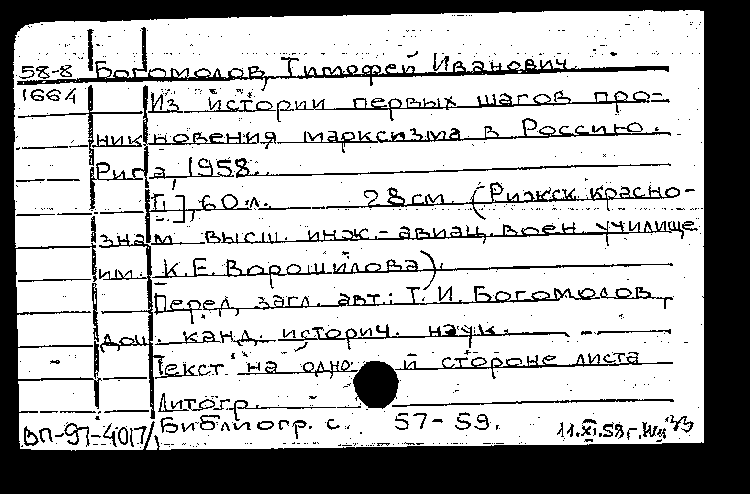 58-8 Богомолов, Тимофей Иванович.
1664 Из истории первых шагов про-
никновения марксизма в Россию.
Рига, 1958.
[1], 60 л. 28 см. (Рижск. красно-
знам. высш. инж.-авиац. воен. училище
им. К.Е. Ворошилова).
Перед загл. авт.: Т. И. Богомолов,
доц. канд. историч. наук.
Текст на одной стороне листа
Литогр.
Библиогр. с. 57-59.
ВП-97-4017 11.XI.58г.